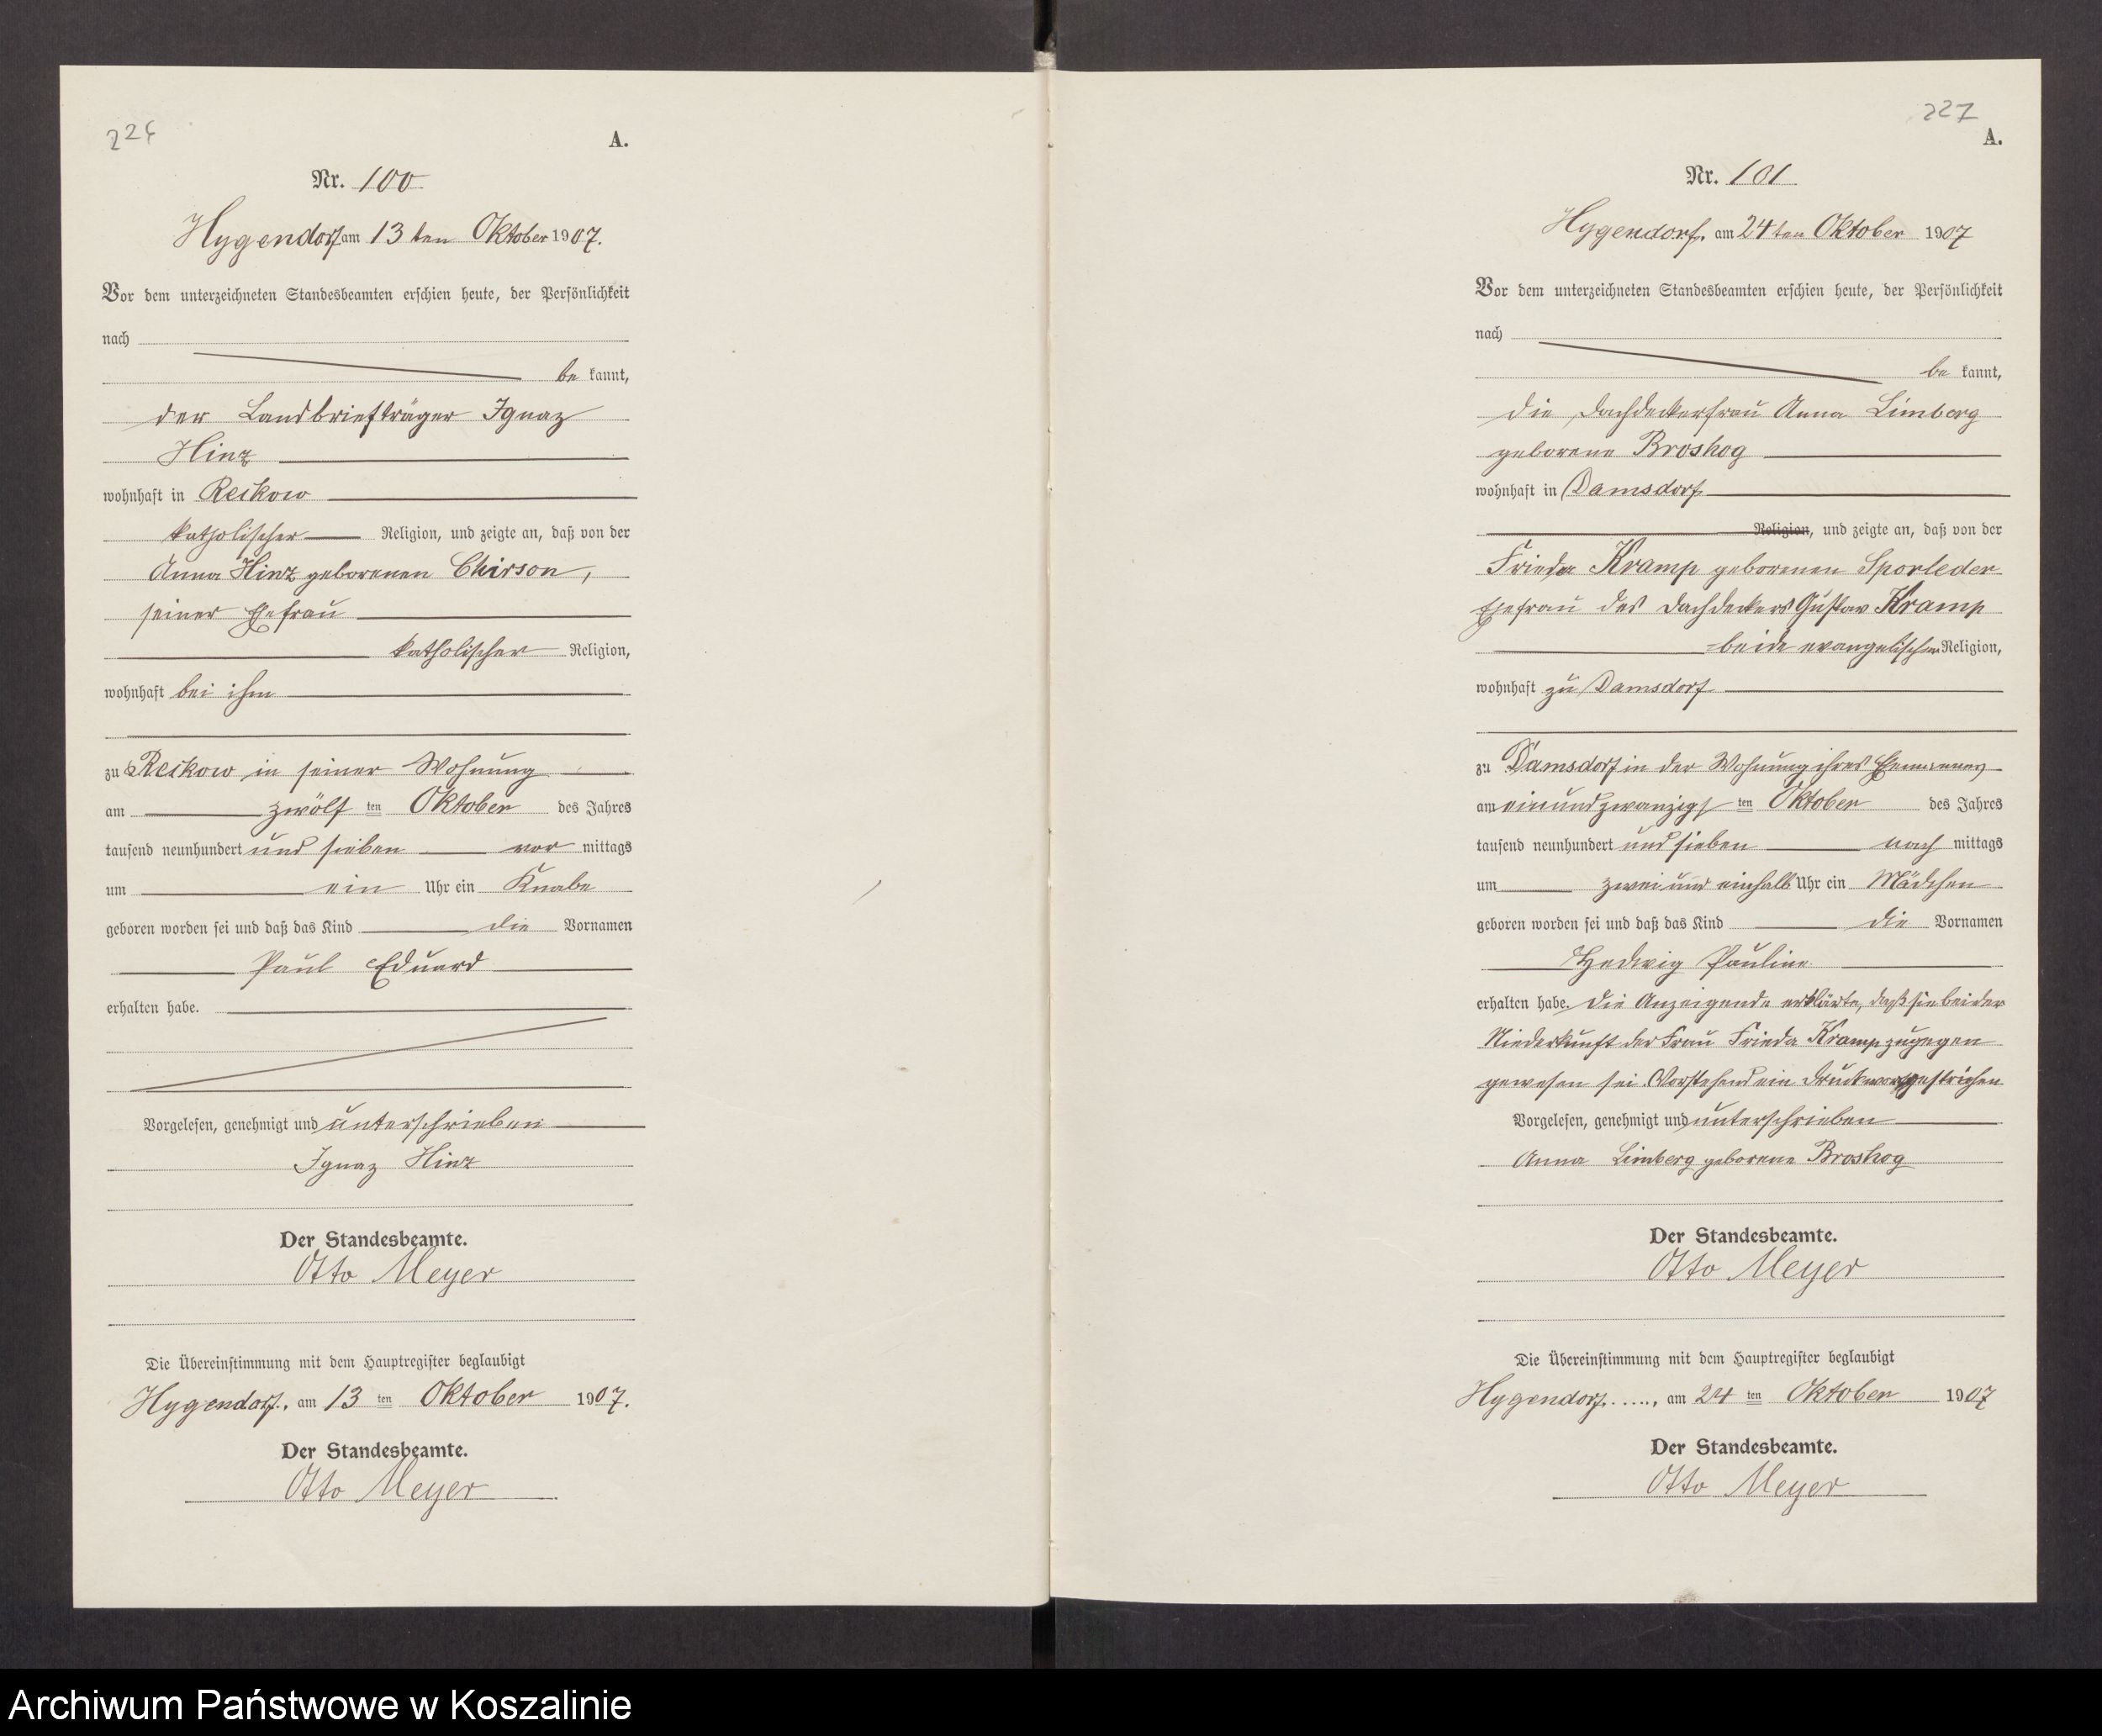 226
A.
Nr. 100
Hygendorf am 13ten Oktober 1907.
Vor dem unterzeichneten Standesbeamten erschien heute, der Persönlichkeit
nach
be kannt,
der Landbriefträger Ignaz
Hinz
wohnhaft in Reckow
katholischer Religion, und zeigte an, daß von der
Anna Hinz geborenen Chirson,
seiner Ehefrau
katholischer Religion,
wohnhaft bei ihm
zu Reckow in seiner Wohnung
am zwölf ten Oktober des Jahres
tausend neunhundert und sieben vor mittags
um ein Uhr ein Knabe
geboren worden sei und daß das Kind die Vornamen
Paul Eduard
erhalten habe.
Vorgelesen, genehmigt und unterschrieben
Ignaz Hinz
Der Standesbeamte.
Otto Meyer
Die Übereinstimmung mit dem Hauptregister beglaubigt
Hygendorf, am 13 ten Oktober 1907.
Der Standesbeamte.
Otto Meyer
227
A.
Nr. 101
Hygendorf, am 24ten Oktober 1907
Vor dem unterzeichneten Standesbeamten erschien heute, der Persönlichkeit
nach
be kannt,
die Dachdeckerfrau Anna Limberg
geborene Broskog
wohnhaft in Damsdorf
Religion, und zeigte an, daß von der
Frieda Kramp geborenen Sporleder
Ehefrau des Dachdeckers Gustav Kramp
=beide evangelischer Religion,
wohnhaft zu Damsdorf
zu Damsdorf in der Wohnung ihres Ehemannes
am einundzwanzigs ten Oktober des Jahres
tausend neunhundert und sieben nach mittags
um zwei und einhalb Uhr ein Mädchen
geboren worden sei und daß das Kind die Vornamen
Hedwig Pauline
erhalten habe. Die Anzeigende erklärte, daß sie bei der
Niederkunft der Frau Frieda Kramp zugegen
gewesen sei. Vorstehend ein Druckwort gestrichen
Vorgelesen, genehmigt und unterschrieben
Anna Limberg geborene Broskog
Der Standesbeamte.
Otto Meyer
Die Übereinstimmung mit dem Hauptregister beglaubigt
Hygendorf......, am 24 ten Oktober 1907
Der Standesbeamte.
Otto Meyer
Archiwum Państwowe w Koszalinie